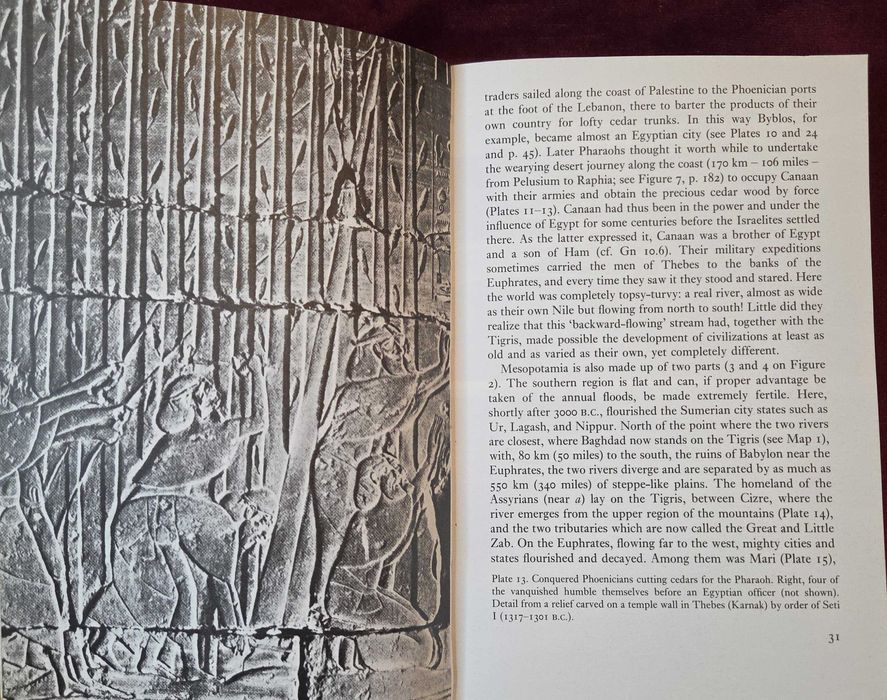 traders sailed along the coast of Palestine to the Phoenician ports
at the foot of the Lebanon, there to barter the products of their
own country for lofty cedar trunks. In this way Byblos, for
example, became almost an Egyptian city (see Plates 10 and 24
and p. 45). Later Pharaohs thought it worth while to undertake
the wearying desert journey along the coast (170 km – 106 miles –
from Pelusium to Raphia; see Figure 7, p. 182) to occupy Canaan
with their armies and obtain the precious cedar wood by force
(Plates 11–13). Canaan had thus been in the power and under the
influence of Egypt for some centuries before the Israelites settled
there. As the latter expressed it, Canaan was a brother of Egypt
and a son of Ham (cf. Gn 10.6). Their military expeditions
sometimes carried the men of Thebes to the banks of the
Euphrates, and every time they saw it they stood and stared. Here
the world was completely topsy-turvy: a real river, almost as wide
as their own Nile but flowing from north to south! Little did they
realize that this ‘backward-flowing’ stream had, together with the
Tigris, made possible the development of civilizations at least as
old and as varied as their own, yet completely different.
Mesopotamia is also made up of two parts (3 and 4 on Figure
2). The southern region is flat and can, if proper advantage be
taken of the annual floods, be made extremely fertile. Here,
shortly after 3000 B.C., flourished the Sumerian city states such as
Ur, Lagash, and Nippur. North of the point where the two rivers
are closest, where Baghdad now stands on the Tigris (see Map 1),
with, 80 km (50 miles) to the south, the ruins of Babylon near the
Euphrates, the two rivers diverge and are separated by as much as
550 km (340 miles) of steppe-like plains. The homeland of the
Assyrians (near a) lay on the Tigris, between Cizre, where the
river emerges from the upper region of the mountains (Plate 14),
and the two tributaries which are now called the Great and Little
Zab. On the Euphrates, flowing far to the west, mighty cities and
states flourished and decayed. Among them was Mari (Plate 15),
Plate 13. Conquered Phoenicians cutting cedars for the Pharaoh. Right, four of
the vanquished humble themselves before an Egyptian officer (not shown).
Detail from a relief carved on a temple wall in Thebes (Karnak) by order of Seti
I (1317–1301 B.C.).
31